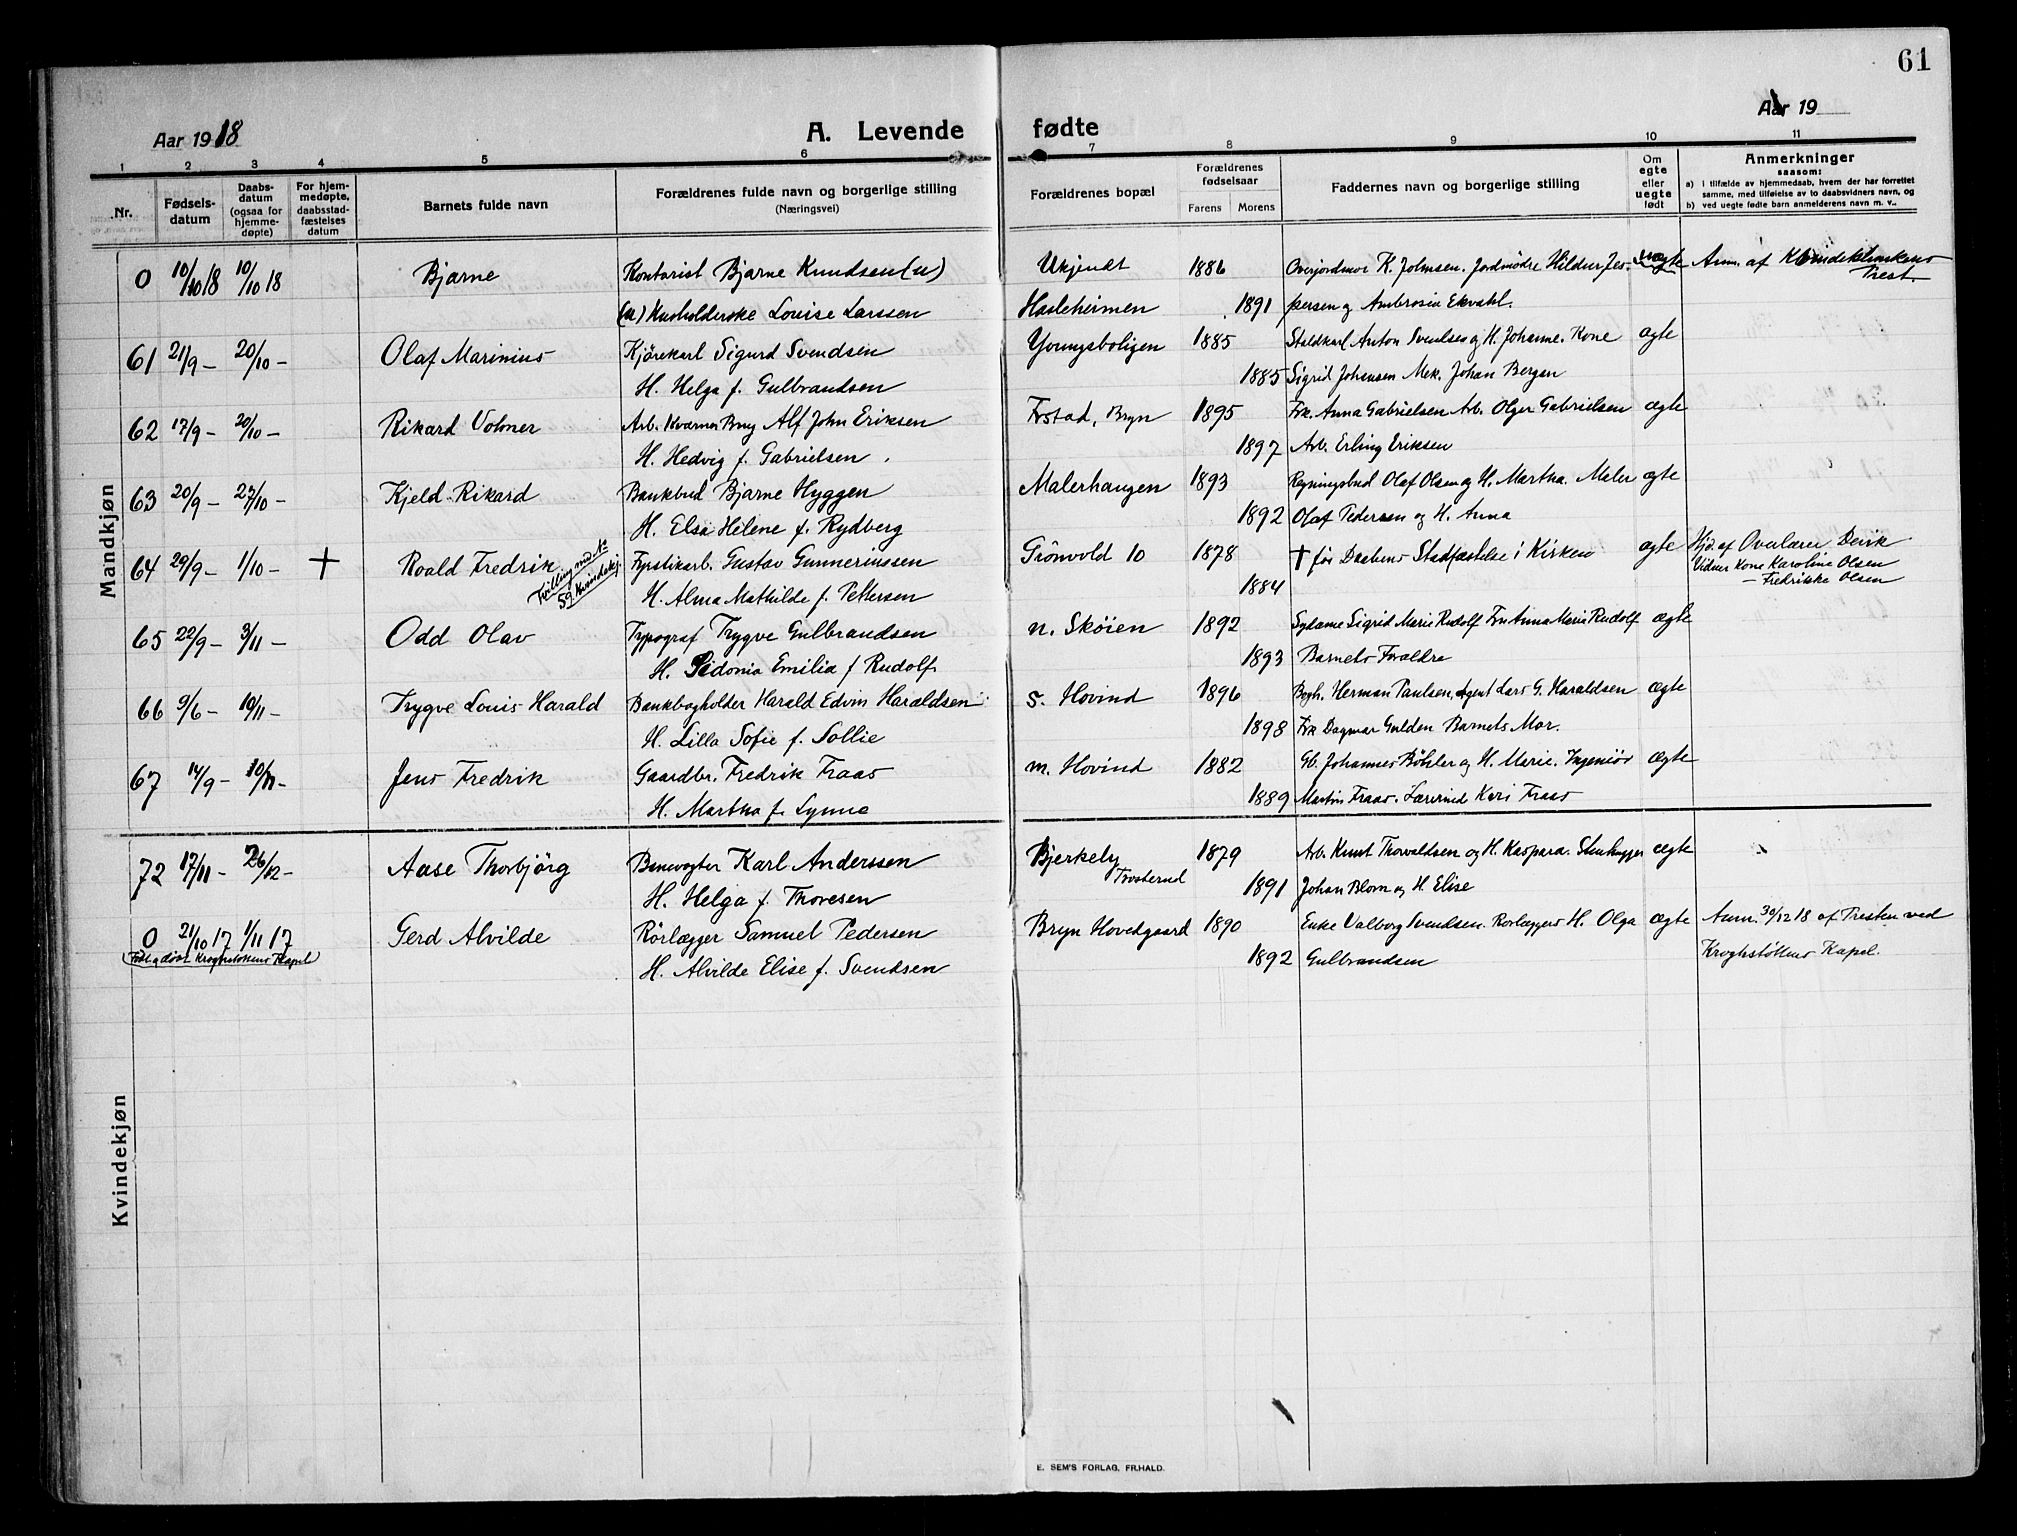 61
Aar 1918
A. Levende fødte
Aar 19
1 2 3 4 5 6 7 8 9 10 11
Nr.
Fødsels-
datum
Daabs-
datum
(ogsaa for
hjemme-
døpte)
For hjem-
medøpte,
daabsstad-
fæstelses
datum
Barnets fulde navn
Forældrenes fulde navn og borgerlige stilling
(Næringsvei)
Forældrenes bopæl
Forældrenes
fødselsaar
Farens Morens
Faddernes navn og borgerlige stilling
Om
egte
eller
uegte
født
Anmerkninger
saasom:
a) i tilfælde av hjemmedaab, hvem der har forrettet
samme, med tilføielse av to daabsvidners navn, og
b) ved uegte fødte barn anmelderens navn m. v..
Mandkjøn
0 10/10 18 10/10 18 Bjarne Kontorist Bjarne Knudsen (u) Ukjendt 1886 Overjordmor K. Johnsen. Jordmødre Hildur Jes- uægte Anm. af Kvindeklinikens
Prest.
(u) Husholderske Louise Larssen Hasleheimen 1891 persen og Ambrosia Ekvahl.
61 21/9 – 20/10 – Olaf Marinius Kjørekarl Sigurd Svendsen Youngsboligen 1885 Staldkarl Anton Svendsen og H. Johanne. Kone ægte
H. Helga f. Gulbrandsen 1885 Sigrid Johansen Mek. Johan Bergan
62 17/9 – 20/10 – Rikard Volmer Arb. Kværner Brug Alf John Eriksen Frstad, Bryn 1895 Frk. Anna Gabrielsen Arb. Olger Gabrielsen ægte
H. Hedvig f. Gabrielsen 1897 Arb. Erling Eriksen
63 20/9 – 27/10 – Kjeld Rikard Bankbud Bjarne Hyggen Malerhaugen 1893 Regningsbud Olaf Olsen og H. Martha. Maler ægte
H. Elsa Helene f. Rydberg 1892 Olaf Pedersen og H. Anna
64 29/9 – 1/10 – + Roald Fredrik Fyrstikarb. Gustav Gunneriussen Grönvold 10 1878 + før Daabens Stadfæstelse i Kirken ægte Hjd. af Overlærer Devik
Tvilling med No
59 Kvindekj.
Vidner Kone Karoline Olsen
H. Alma Mathilde f. Pettersen 1884 – Fredrikke Olsen
65 22/9 – 3/11 – Odd Olav Typograf Trygve Gulbrandsen n. Skøien 1892 Sydame Sigrid Marie Rudolf Fru Anna Marie Rudolf ægte
H. Sidonia Emilia f Rudolf 1893 Barnets Forældre
66 9/6 – 10/11 – Trygve Louis Harald Bankbogholder Harald Edvin Haraldsen s. Hovind 1896 Bogh. Herman Paulsen, Agent Lars G. Haraldsen ægte
H. Lilla Sofie f. Sollie 1898 Frk Dagmar Gulden Barnets Mor.
67 14/9 – 10/11 – Jens Fredrik Gaardbr. Fredrik Fraas m. Hovind 1882 Gb. Johannes Bøhler og H. Marie. Ingeniør ægte
H. Martha f. Lynne 1889 Martin Fraas. Lærerinde Kari Fraas
Kvindekjøn
72 17/11 – 26/12 – Aase Thorbjörg Banevogter Karl Anderssen Bjerkely 1879 Arb. Knut Thorvaldsen og H. Kaspara. Stenhugger ægte
Trosterud
H. Helga f. Thoresen 1891 Johan Blom og H Elise
0 21/10 17 1/11 17 Gerd Alvilde Rörlægger Samuel Pedersen Bryn Hovedgaard 1890 Enke Valborg Svendsen. Rørlæggers H. Olga ægte Anm. 30/12 18 af Presten ved
(Født og døbt Krogstøttens Kapel)
H. Alvilde Elise f. Svendsen 1892 Gulbrandsen Kroghstøttens Kapel.
E. SEM'S FORLAG, FR.HALD.